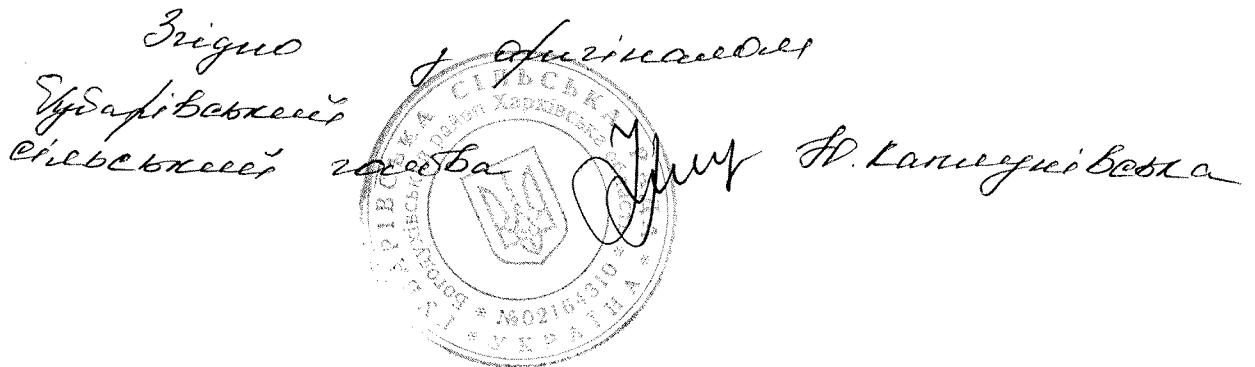 Згідно з оригіналом
Губарівський
сільський голова Н. Капишнівська
ГУБАРІВСЬКА СІЛЬСЬКА РАДА * УКРАЇНА *
Богодухівський район Харківська область * №02164310 *